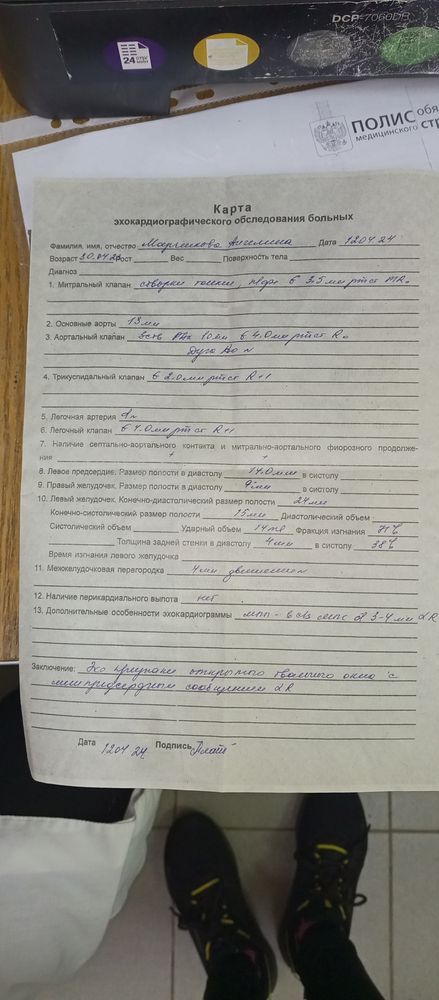 DCP-7060DR
24
ПОЛИС обя
медицинского стр
Карта
эхокардиографического обследования больных
Фамилия, имя, отчество Ангелина Дата 120424
Возраст Рост Вес Поверхность тела
Диагноз
1. Митральный клапан створки тонкие, 3.5 мм рт ст
2. Основные аорты 13мм
3. Аортальный клапан 3ств 10мм 4.0 мм рт ст R0
Дуга Ао N
4. Трикуспидальный клапан 2.0 мм рт ст R+1
5. Легочная артерия
6. Легочный клапан мм рт ст R+1
7. Наличие септально-аортального контакта и митрально-аортального фиорозного продолже-
ния + +
8. Левое предсердие. Размер полости в диастолу 14.0мм в систолу
9. Правый желудочек. Размер полости в диастолу 9мм в систолу
10. Левый желудочек. Конечно-диастолический размер полости 24мм
Конечно-систолический размер полости 15мм Диастолический объем
Систолический объем Ударный объем 14ml Фракция изгнания 71%
Толщина задней стенки в диастолу 4мм в систолу 38%
Время изгнания левого желудочка
11. Межжелудочковая перегородка 4мм движение N
12. Наличие перикардиального выпота нет
13. Дополнительные особенности эхокардиограммы МПП - 3-4 мм
Заключение: Эхо признаки открытого овального окна с
межпредсердным сообщением
Дата 1204 24 Подпись